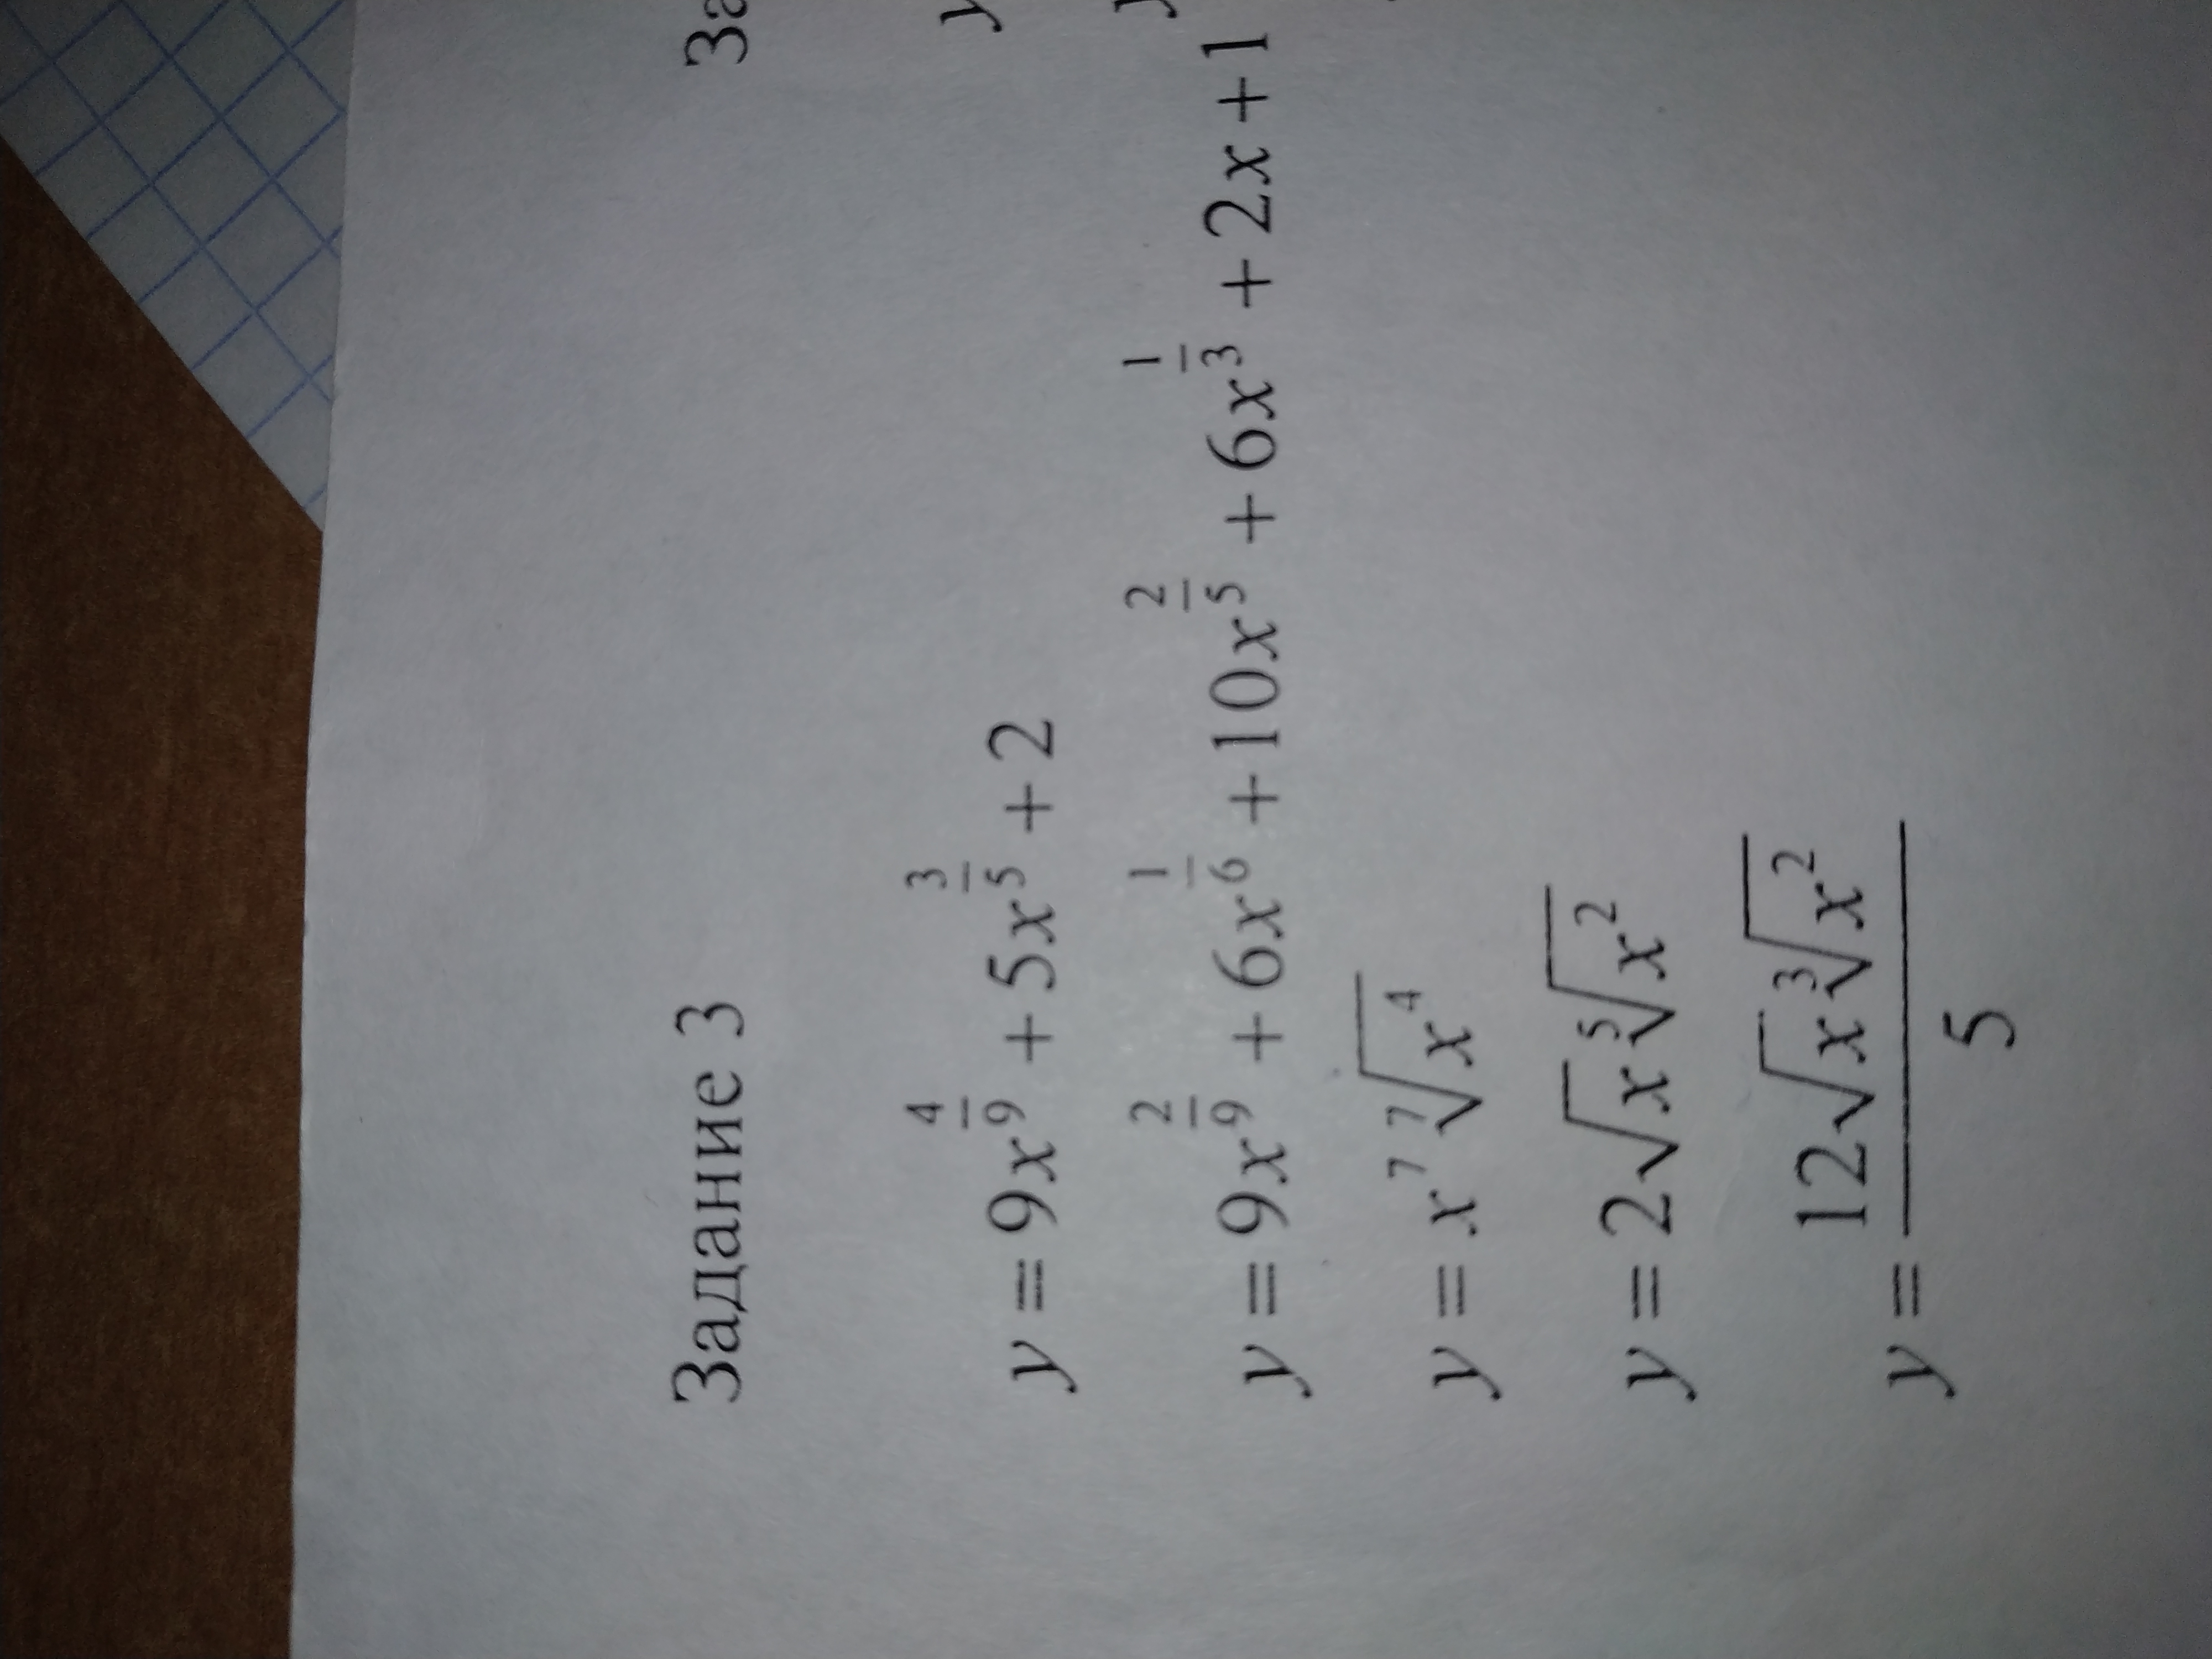 Задание 3
За
y = 9x^{4/9} + 5x^{3/5} + 2
y
y = 9x^{2/9} + 6x^{1/6} + 10x^{2/5} + 6x^{1/3} + 2x + 1
y = x^7 \sqrt[7]{x^4}
y = 2\sqrt{x}\sqrt[5]{x^2}
y = \frac{12\sqrt{x}\sqrt[3]{x^2}}{5}